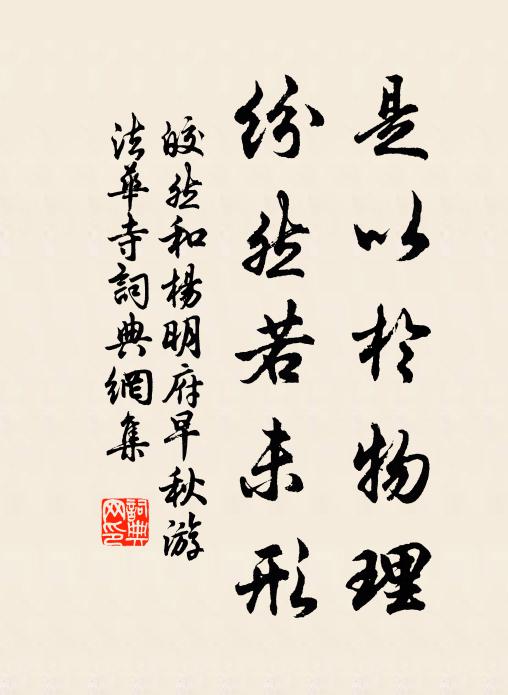 是以於物理
紛然若未形
皎然和楊明府早秋游
法華寺詞典網集
詞典
网印